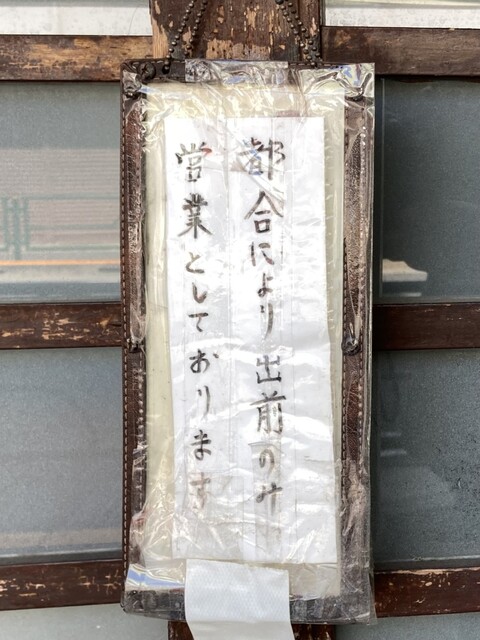 都合により出前のみ
営業としております